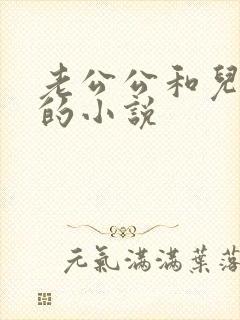 老公公和兒
的小説
元氣滿滿葉落